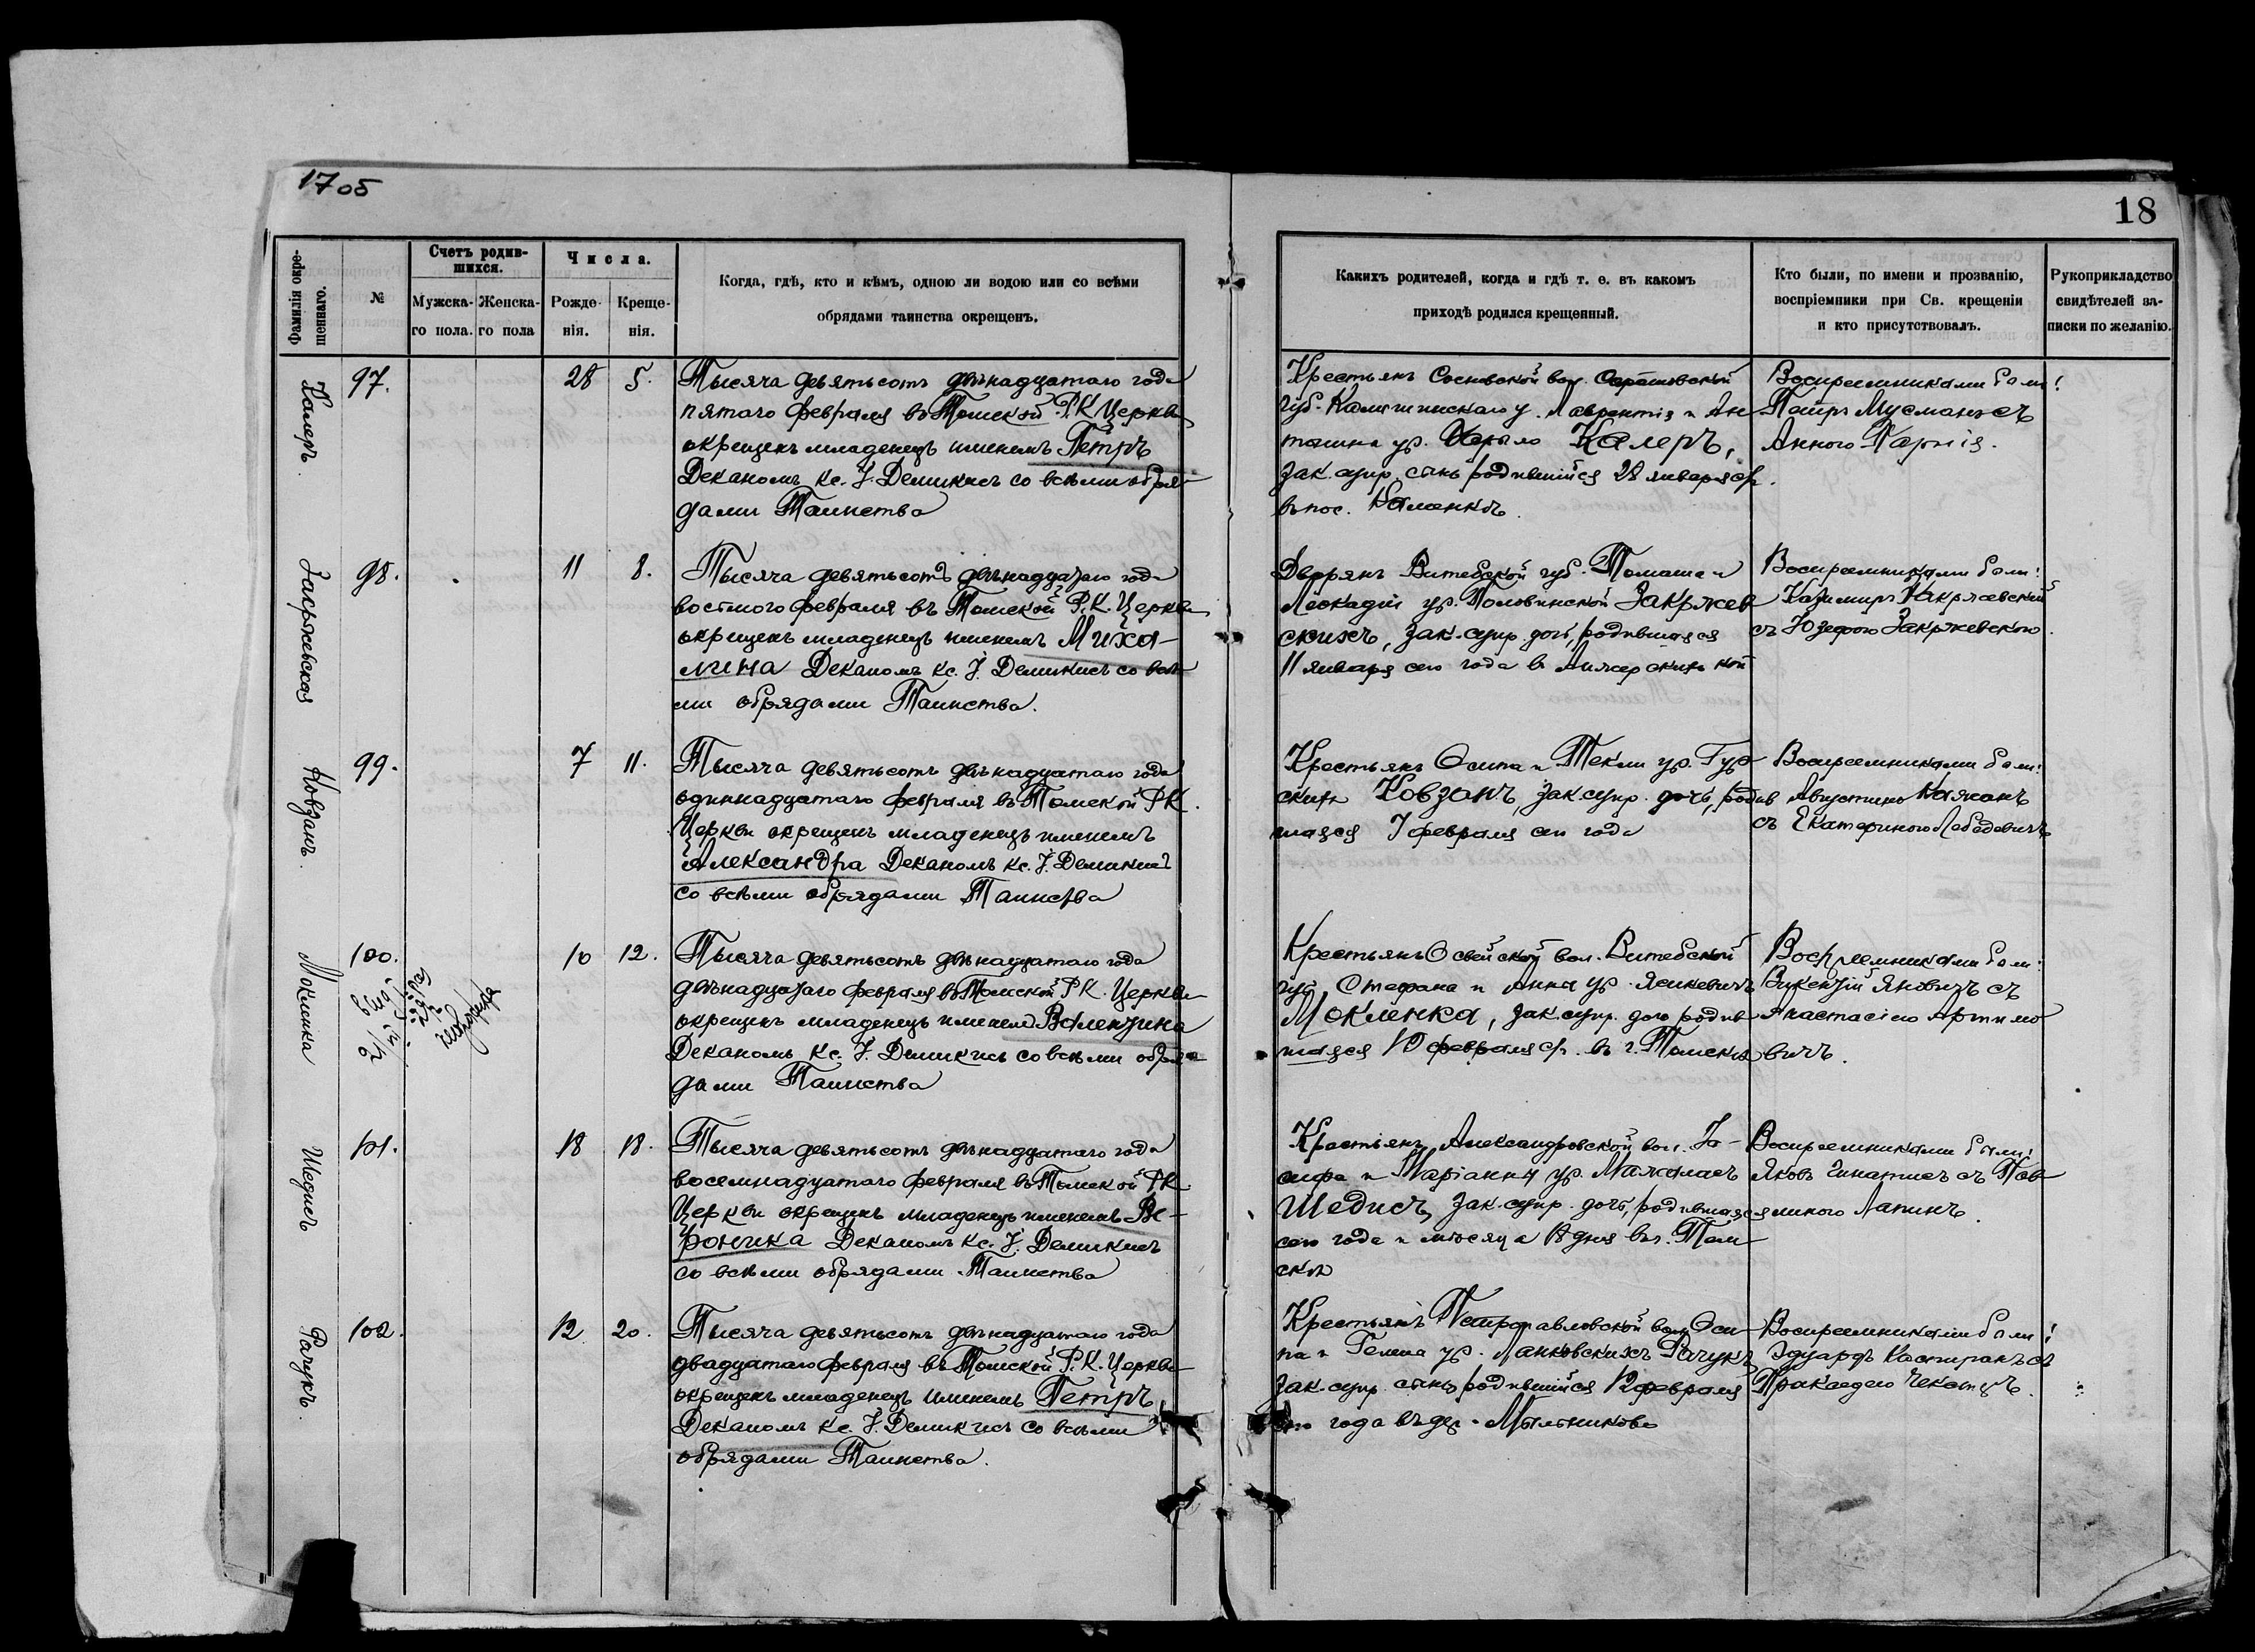 17 об
18
Фамилія окре-
щеннаго.
№
Счетъ родив-
шихся.
Мужска-
го пола.
Женска-
го пола
Числа.
Рожде-
нія.
Креще-
нія.
Когда, гдѣ, кто и кѣмъ, одною ли водою или со всѣми
обрядами таинства окрещенъ.
Какихъ родителей, когда и гдѣ т. е. въ какомъ
приходѣ родился крещенный.
Кто были, по имени и прозванію,
воспріемники при Св. крещеніи
и кто присутствовалъ.
Рукоприкладство
свидѣтелей за-
писки по желанію.
Калеръ.
97.
28
5.
Тысяча девятьсотъ двѣнадцатаго года
пятаго февраля въ Томской Р. К. Церкви
окрещенъ младенецъ именемъ Петръ
Деканомъ Кс. І. Демикисъ со всѣми обря-
дами Таинства
Крестьянъ Сосновской вол. Саратовской
губ. Камышинскаго у. Лаврентія и Ан
тонина ур. Калеръ,
зак. супр. сынъ, родившійся 28 января с/г.
въ пос. Каменкѣ.
Воспреемниками были:
Петръ Мусманъ съ
Анною
98.
11
8.
Тысяча девятьсотъ двѣнадцатаго года
восьмого февраля въ Томской Р. К. Церкви
окрещенъ младенецъ именемъ Миха-
лина Деканомъ Кс. І. Демикисъ со всѣ
ми обрядами Таинства.
Дворянъ Витебской губ. Томаша и
Леокадіи ур. Половинской Закржев
скихъ, зак. супр. дочь, родившаяся
11 января сего года в Анжерскихъ коп
Воспреемниками были:
Казимиръ Закржевскій
съ Юзефою Закржевскою.
Ковзанъ.
99.
7
11.
Тысяча девятьсотъ двѣнадцатаго года
одиннадцатаго февраля въ Томской Р. К.
Церкви окрещенъ младенецъ именемъ
Александра Деканомъ Кс. І. Демикисъ
со всѣми обрядами Таинства
Крестьянъ Осипа и Текли ур. Гур
скихъ Ковзанъ, зак. супр. дочь, родив
шаяся 7 февраля сего года
Воспреемниками были:
Августинъ
съ Екатериною Лебедевичъ
Мокленка
100.
10
12.
Тысяча девятьсотъ двѣнадцатаго года
двѣнадцатаго февраля въ Томской Р. К. Церкви
окрещенъ младенецъ именем Валентина
Деканомъ Кс. І. Демикисъ со всѣми обря
дами Таинства
Крестьянъ Освейской вол. Витебской
губ. Стефана и Анны ур. Яцкевичъ
Мокленка, зак. супр. дочь родив
шаяся 10 февраля с/г. въ г. Томскѣ
Воспреемниками были:
Викентій Яновичъ съ
Анастасіею Артимо
вичъ.
Шедисъ
101.
18
18.
Тысяча девятьсотъ двѣнадцатаго года
восемнадцатаго февраля въ Томской Р. К.
Церкви окрещенъ младенецъ именемъ Ве-
роника Деканомъ Кс. І. Демикисъ
со всѣми обрядами Таинства
Крестьянъ Александровской вол. Іо-
сифа и Маріанны ур.
Шедисъ, зак. супр. дочь, родившаяся
сего года и мѣсяца 18 дня въ г. Том
скѣ
Воспреемниками были:
Яковъ Игнатисъ съ Пав
линою Лапинъ.
Рачукъ.
102.
12
20.
Тысяча девятьсотъ двѣнадцатаго года
двадцатаго февраля въ Томской Р. К. Церкви
окрещенъ младенецъ именемъ Петръ
Деканомъ Кс. І. Демикисъ со всѣми
обрядами Таинства.
Крестьянъ Петропавловской вол. Оси
па и Гелена ур. Лапковскихъ Рачукъ
зак. супр. сынъ, родившійся 12 февраля
сего года въ дер. Мыльниково
Воспреемниками были:
Эдуардъ Каспиракъ съ
Пракседою